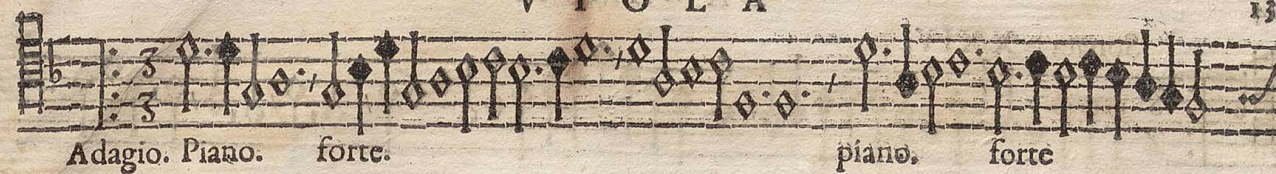 VIOLA 13
3
3
Adagio. Piano. forte. piano. forte